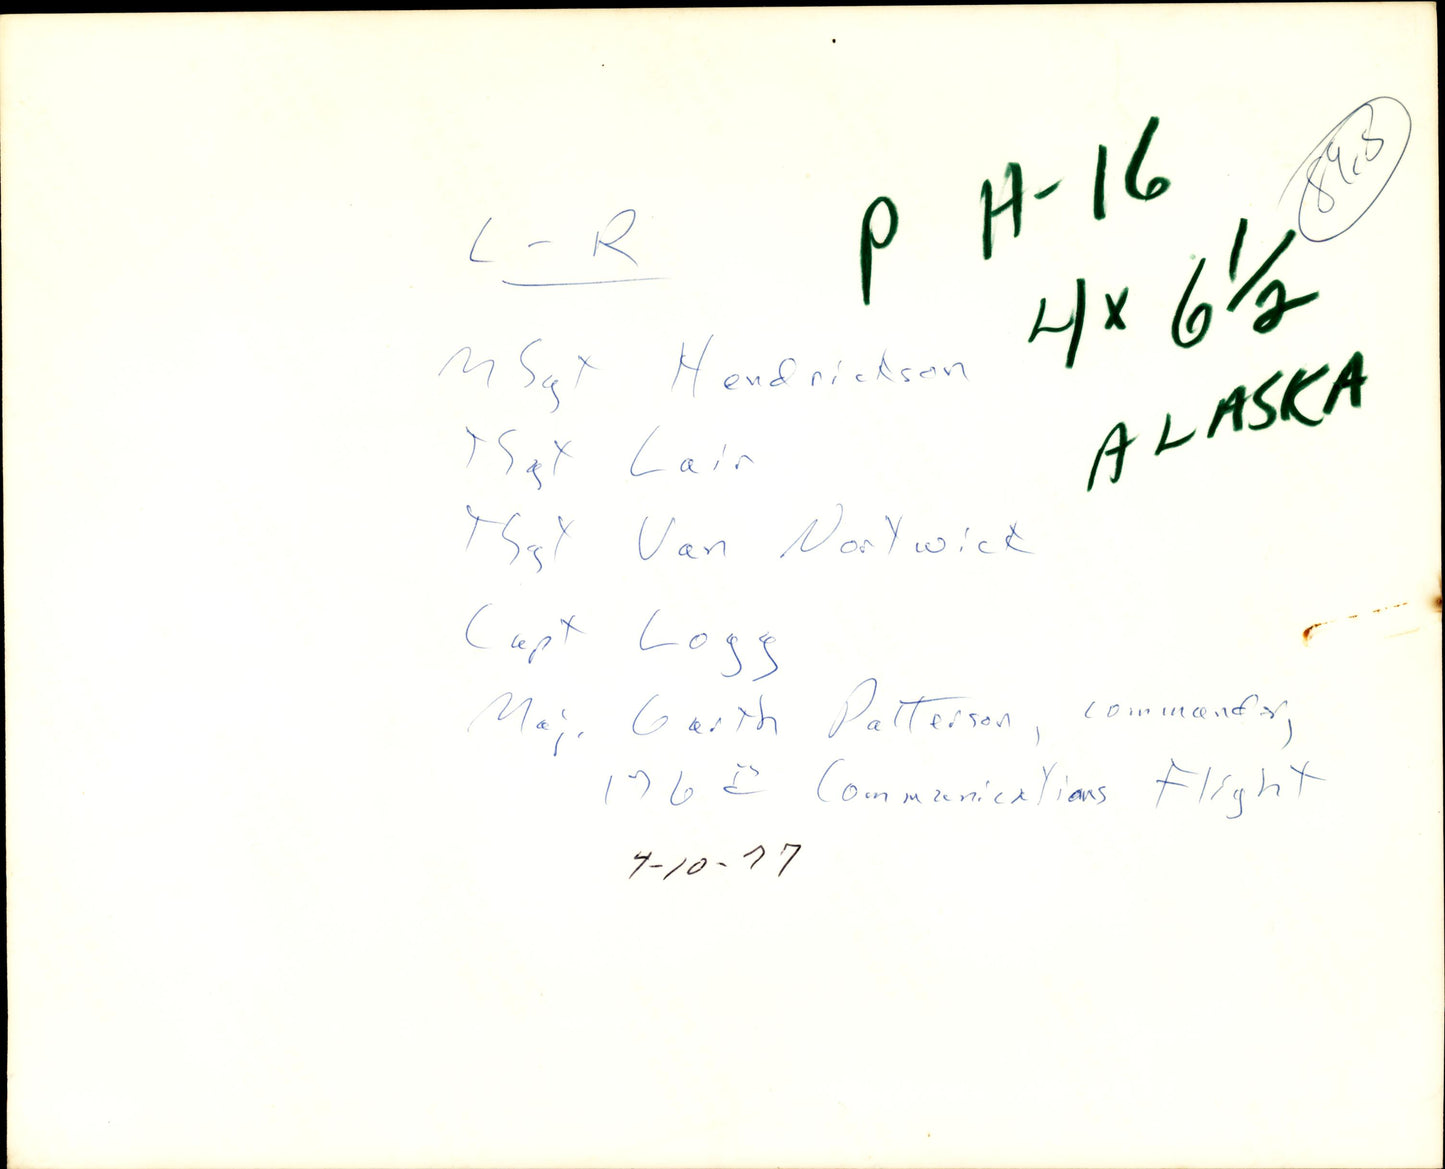 84.5
P H-16
4 x 6 1/2
ALASKA
L - R
MSgt Hendrickson
TSgt Lair
TSgt Van Nortwick
Capt Logg
Maj. Garth Patterson, commander,
176th Communications Flight
4-10-77